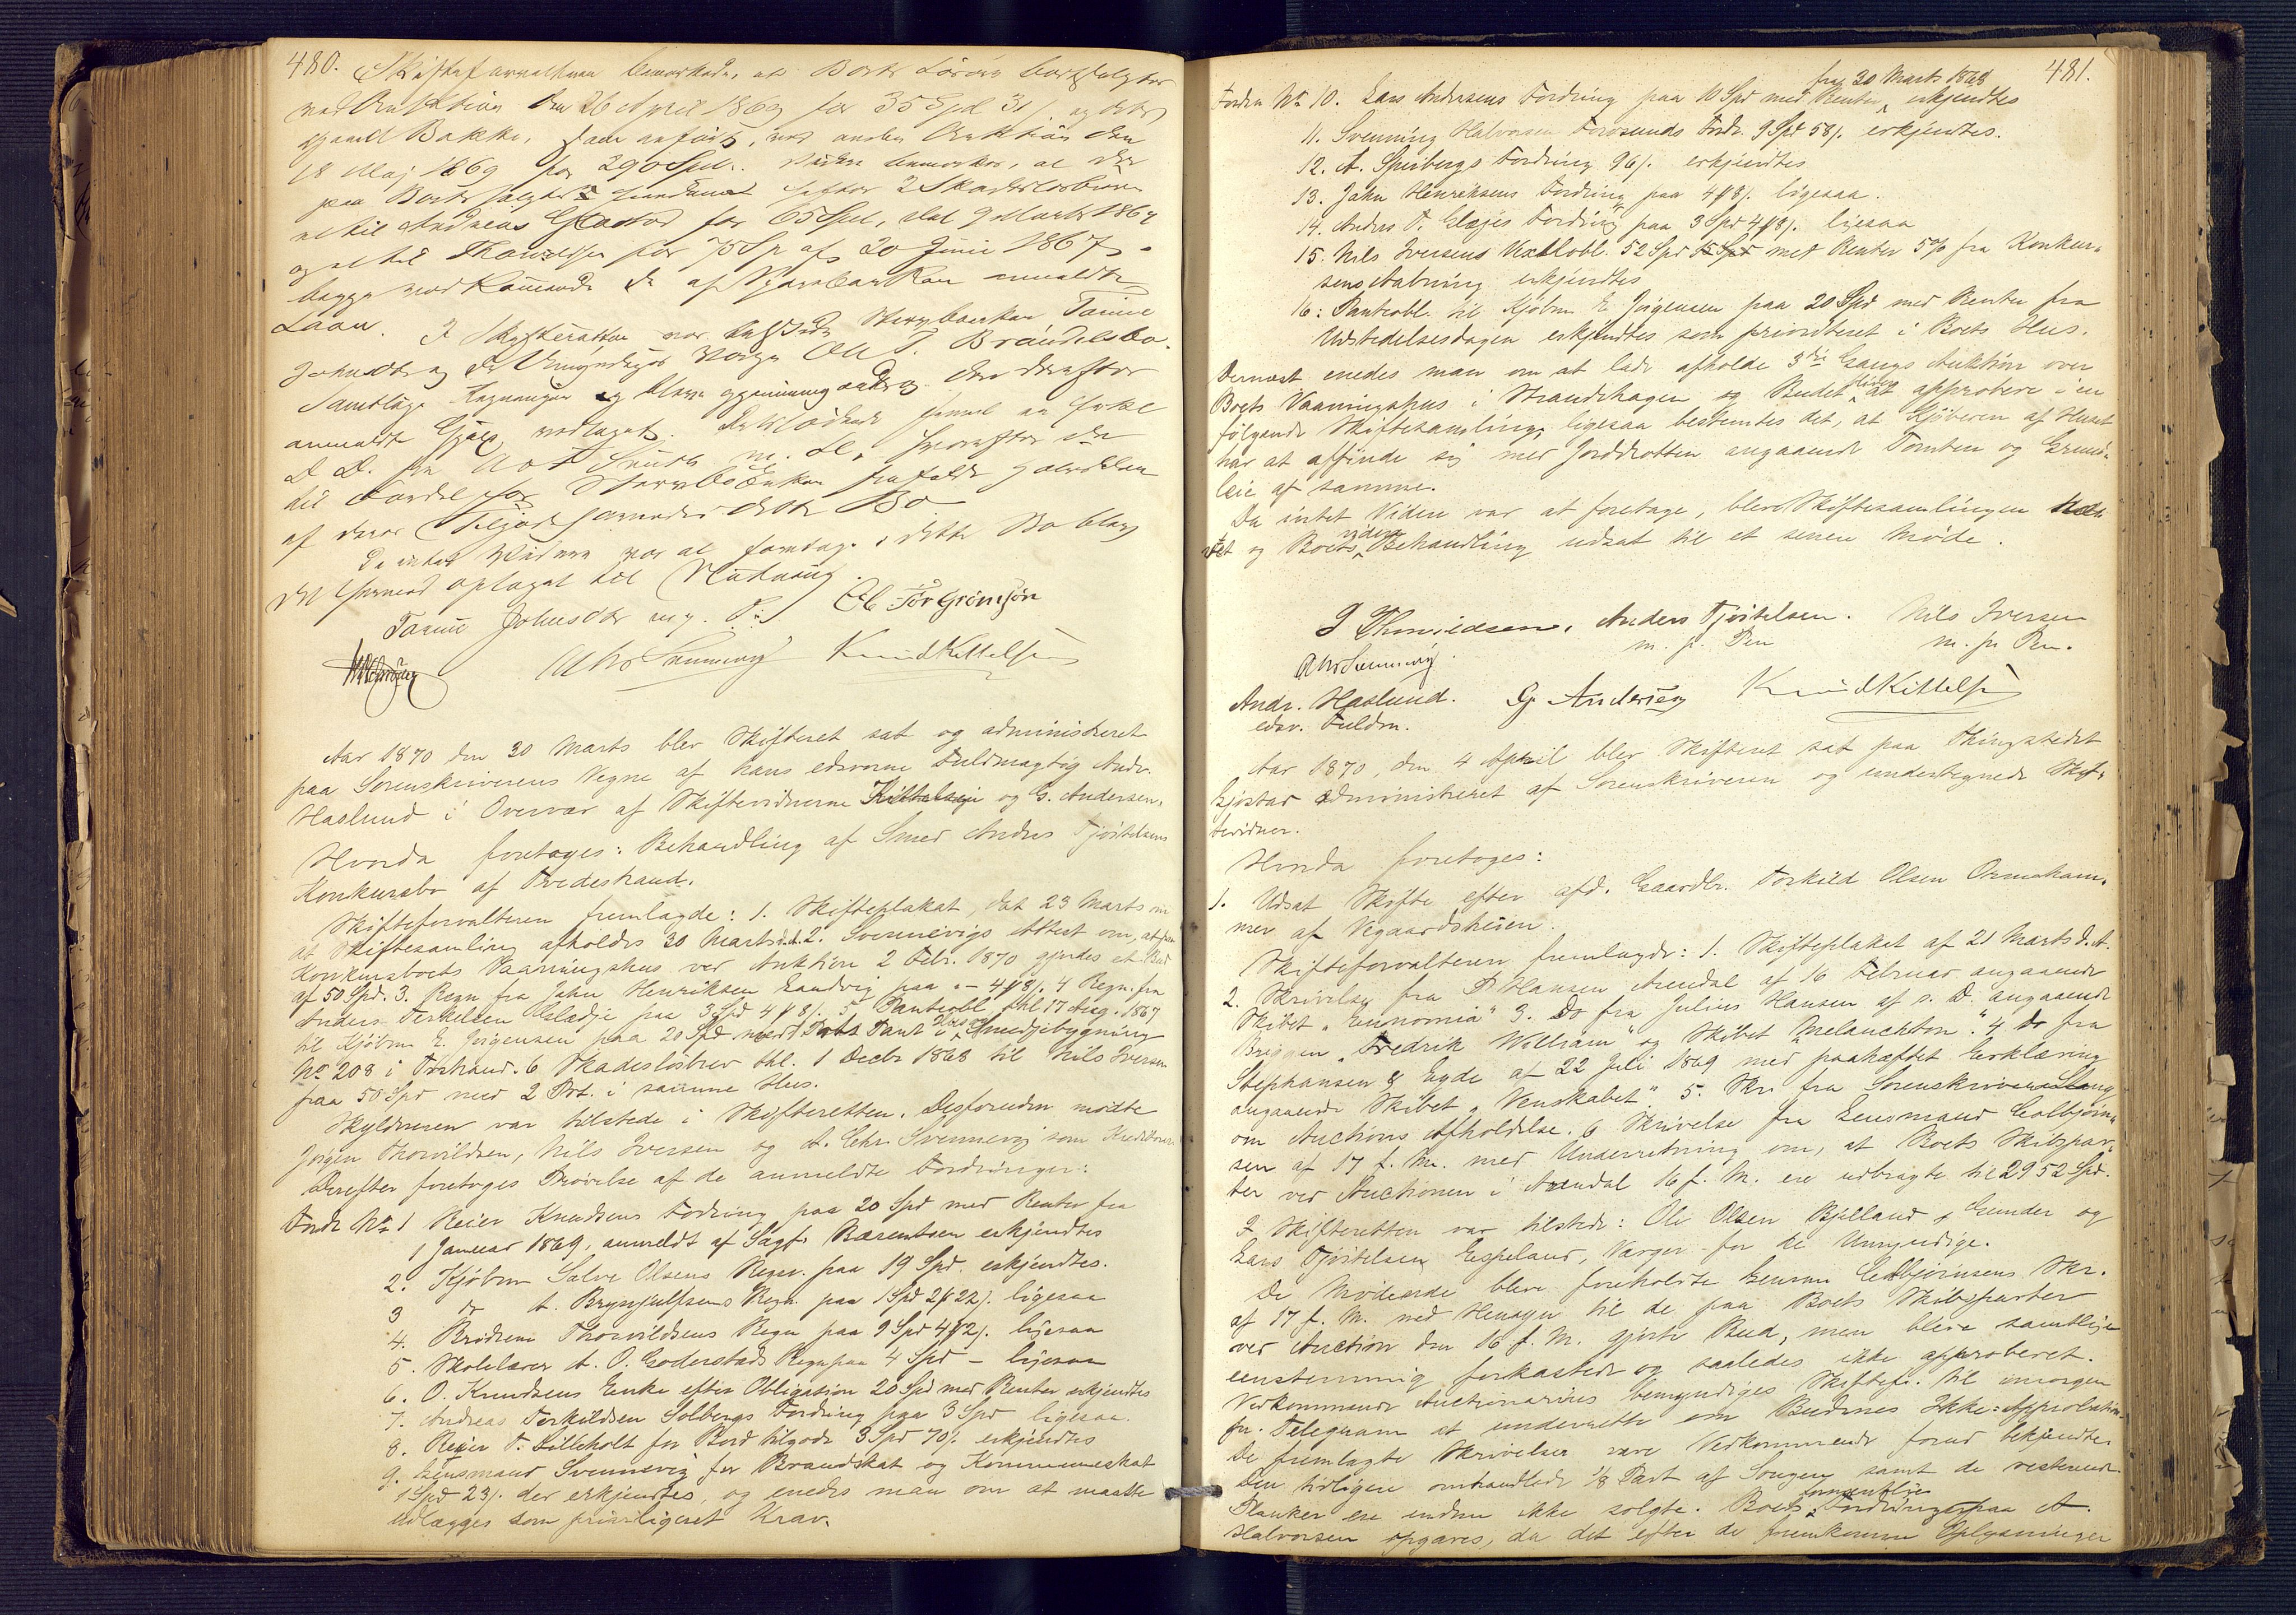 480.
Skifteforvalteren bemærkede, at Boets Løsøre bortsolgtes
ved Auktion den 26 April 1869 for 35 Spd 31 ß og dets
Gaard Bakke, ved anden Auktion den
18 Maj 1869 for 290 Spd. Videre bemærkes, at der
paa Boets 2 Skadesløsbreve
et til Andreas for 65 Spd, dat 9 Marts 1864
og et til for 75 Sp af 20 Juni 1867,
begge vedkommende de af Sparebanken anmeldte
Laan.
I Skifteretten var tilstede Stervboenken Tarine
Johnsdtr og de Umyndiges Værge Ole T. Brændelsbo.
Samtlige Regninger bleve gjennemgaaede og den derefter
anmeldte Gjæld vedtaget.
til Fordel for Stervboenken frafaldt
af deres Tilgodehavender i dette Bo.
Da intet Videre var at foretage i dette Bo blev
det hermed optaget til Slutning.
Tarine Johnsdtr m. p. P. Ole Torgrimsøn
Knud Kittelsen
Aar 1870 den 30 Marts blev Skifteret sat og administreret
paa Sorenskriverens Vegne af hans edsvorne Fuldmægtig Andr.
Haslund i Overvær af Skiftevidnerne Kittelsen og G. Andersen.
Hvorda foretoges: Behandling af Smed Anders Tjøstelsens
Konkursbo af Tvedestrand.
Skifteforvalteren fremlagde: 1. Skifteplakat, dat 23 Marts om
at Skiftesamling afholdes 30 Marts d. A. 2. Svennevigs Attest om, at paa
Konkursboets Vaaningshus ved Auktion 2 Febr. 1870 gjordes et Bud
af 50 Spd. 3. Regn fra Jahn Henriksen Sandvig paa " - 4 ß 8 ß. 4 Regn. fra
Anders Terkelsen Glædje paa 3 Spd 4 ß 8 ß. 5 Panteobl. thl 17 Aug. 1867
til Kjøbm E. Jørgensen paa 20 Spd med Pant i Hus og Smedjebygning
No 208 i Tvestrand. 6 Skadesløsbrev thl. 1 Decbr 1868 til Nils Iversen
paa 50 Spd med 2 Prt. i samme Hus.
Skyldneren var tilstede i Skifteretten. Desforuden mødte
Jørgen Thorvildsen, Nils Iversen og A. Chr. Svennevig som Kreditorer
Derefter foretoges Prøvelse af de anmeldte Fordringer:
Fordr No 1 Reier Knudsens Fodring paa 20 Spd med Renter fra
1 Januar 1869, anmeldt af Sagf. Barentsen erkjendtes
2. Kjøbm Salve Olsens Regn. paa 19 Spd. erkjendtes.
3 do A. Brynjulfsens Regn. paa 1 Spd 2 ß 22 ß. ligesaa
4. Brødrene Thorvildsens Regn paa 9 Spd 4 ß 2 ß. ligesaa
5. Skolelærer A. O. Goderstads Regn paa 4 Spd - ligesaa
6. O. Knudsens Enke efter Obligation 20 Spd med Renter erkjendtes
7. Andreas Terkildsen Solbergs Fordring paa 3 Spd ligesaa.
8. Reier T. Lilleholt for Bord tilgode 3 Spd 70 ß. erkjendtes
9. Lensmand Svennevig for Brandskat og Kommuneskat
1 Spd 23 ß. der erkjendtes, og enedes man om at maatte
udlægges som priviligeret Krav.
481.
fra 20 Marts 1868
Fordr No 10. Lars Andersens Fordring paa 10 Spd med Renter erkjendtes
11. Svenning Halvorsen Fossunds Fordr. 9 Spd 58 ß. erkjendtes.
12. A. Spirbergs Fordring 96 ß. erkjendtes
13. Jahn Henriksens Fordring paa 4 ß 8 ß. ligesaa.
14. Anders T. Glæjes Fordring paa 3 Spd 4 ß 8 ß. ligesaa
15. Nils Iversens Vexelobl. 52 Spd 15 Spd med Renter 5% fra Konkur-
sens Aabning erkjendtes
16: Panteobl. til Kjøbm E. Jørgensen paa 20 Spd med Renter fra
Udstedelsesdagen erkjendtes som prioriteret i Boets Hus.
Dernæst enedes man om at lade afholde 3die Gangs Auktion over
Boets Vaaningshus i Strandehagen og Budet at approbere i en
følgende Skiftesamling, ligesaa bestemtes det, at Kjøberen af Huset
har at affinde sig med Jorddrotten angaaende Tomten og Grund-
leie af samme.
Da intet Videre var at foretage, blev Skiftesamlingen
tet og Boets videre Behandling udsat til et senere Møde.
J Thorvildsen. Anders Tjøstelsen. Nils Iversen
m. p. Pen m. p. Pen.
Andr. Haslund. G. Andersen Knud Kittelsen
edsv. Fuldm.
Aar 1870, den 4 April blev Skifteret sat paa Thingstedet
Gjøstad administreret af Sorenskriveren og undertegnede Skif-
tevidner.
Hvorda foretoges:
1. Udsat Skifte efter afd. Gaardbr. Torkild Olsen Ormekam-
mer af Vegaardsheien.
Skifteforvalteren fremlagde: 1. Skifteplakat af 21 Marts d. A.
2. Skrivelse fra P Hansen Arendal af 16 Februar angaaende
Skibet "Eunomia" 3. Do fra Julius Hansen af s. D. angaaende
Briggen "Fredrik William" og Skibet "Melanchton". 4. do fra
Stephansen & Eyde af 22 Juli 1869 med paahæftet Erklæring
angaaende Skibet "Venskabet". 5. Skr. fra Sorenskriver Stang
om Auctions Afholdelse. 6 Skrivelse fra Lensmand Colbjørn-
sen af 17 f. M. med Underretning om, at Boets Skibspar-
ter ved Auctionen i Arendal 16 f. M. ere udbragte til 2952 Spd.
I Skifteretten var tilstede: Ole Olsen Bjelland, Gunder og
Lars Tjøstelsen Espeland, Værger for de Umyndige.
De Mødende bleve foreholdte Lensm Colbjørnsens Skr.
af 17 f. M. med Hensyn til de paa Boets Skibsparter
ved Auction den 16 f. M. gjorte Bud, men bleve samtlige
eenstemmig forkastede og saaledes ikke approberet.
Vedkommende Auctionarius bemyndiges Skiftef. til imorgen
pr. Telegram at underrette om Budenes Ikke-Approbation.
De fremlagte Skrivelser vare Vedkommende forud bekjendte.
Den tidligere omhandlede 1/8 Part af Saugen samt de resterende
Planker ere endnu ikke solgte. Boets formentlige Fordringer paa A.
Halvorsen opgaves, da det efter de fremkomne Oplysninger